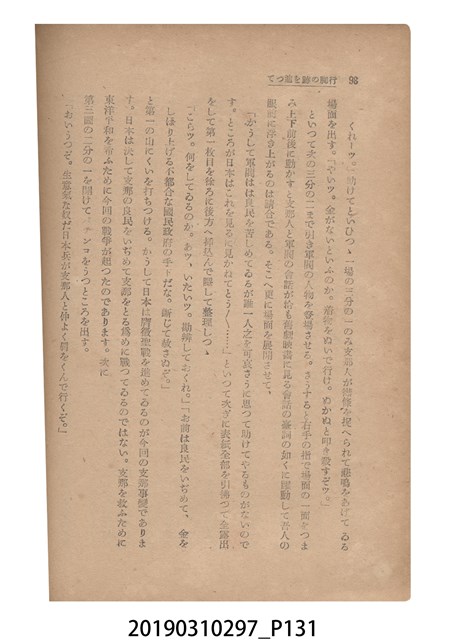 98 行脚の跡を辿つて
くれーッ。助けてといひつゝ一場の三分の一のみ支那人が襟を捉へられて悲鳴をあげてゐる
場面を出す。「やいッ。金がないといふのか。着物をぬいで行け。ぬかぬと叩き殺すぞッ。」
といつて次の三分の二まで引き軍閥の人物を登場させる。さうすると右手の指で場面の一面をつま
み上下前後に動かすと支那人と軍閥の會話が恰も舊劇映畫に見る會話の臺詞の如くに躍動して吾人の
眼前に浮き上がるのは請合である。そこへ更に場面を展開させて、
「かうして軍閥は良民を苦しめてゐるが誰一人之を可哀さうに思つて助けてやるものがないので
す。ところが日本はこれを見るに見かねてとう〳〵……」といつて次ぎに表紙全部を引沸つて全露出
をして第一枚目を徐ろに後方へ挿込んで隱して整理しつゝ
「こらッ。何をしてゐるのか。あッ、いたいッ。勘辨しておくれ。」「お前は良民をいぢめて、金を
しぼり上げる不都合な國民政府の手下だな。斷じて赦さぬぞ。」
と第一の山にくいを打ちつける。かうして日本は膺懲聖戰を進めてゐるのが今回の支那事變でありま
す。日本は決して支那の良民をいぢめて支那をとる爲めに戰つてゐるのではない。支那を救ふために
東洋平和を希ふために今回の戰爭が起つたのであります。次に
第三圖の二分の一を開けてチンコをうつところを出す。
「おいうつぞ。生意氣な奴だ日本兵が支那人と仲よく肩をくんで行くぞ。」
20190310297_P131